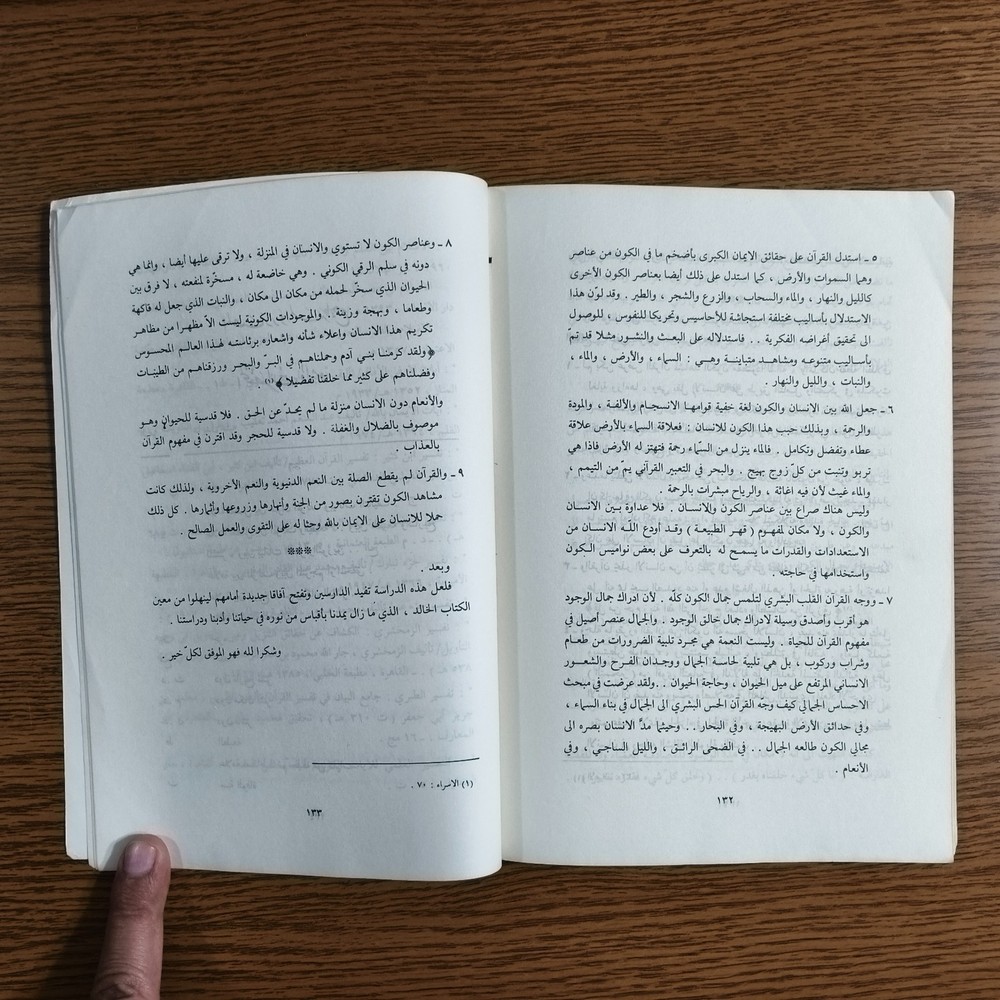 ٥ ـ استدل القرآن على حقائق الايمان الكبرى بأضخم ما في الكون من عناصر
وهما السموات والأرض ، كما استدل على ذلك أيضا بعناصر الكون الأخرى
كالليل والنهار ، والماء والسحاب ، والزرع والشجر ، والطير . وقد لوّن هذا
الاستدلال بأساليب مختلفة استجاشة للأحاسيس وتحريكا للنفوس ، للوصول
الى تحقيق أغراضه الفكرية . . فاستدلاله على البعث والنشور مثلا قد تمّ
بأساليب متنوعه ومشاهد متباينة وهي : السماء ، والأرض ، والماء ،
والنبات ، والليل والنهار .
٦ ـ جعل الله بين الانسان والكون لغة خفية قوامها الانسجام والألفة ، والمودة
والرحمة ، وبذلك حبب هذا الكون للانسان : فعلاقة السماء بالأرض علاقة
عطاء وتفضل وتكامل . فالماء ينزل من السّماء رحمة فتهتز له الأرض فاذا هي
تربو وتنبت من كلّ زوج بهيج . والبحر في التعبير القرآني يمّ من التيمم ،
والماء غيث لأن فيه اغاثة ، والرياح مبشرات بالرحمة .
وليس هناك صراع بين عناصر الكون والإنسان . فلا عداوة بين الانسان
والكون ، ولا مكان لمفهوم ( قهر الطبيعة ) وقد أودع اللّه الانسان من
الاستعدادات والقدرات ما يسمح له بالتعرف على بعض نواميس الكون
واستخدامها في حاجته .
٧ ـ ووجه القرآن القلب البشري لتلمس جمال الكون كلّه . لأن ادراك جمال الوجود
هو اقرب وأصدق وسيلة لادراك جمال خالق الوجود . والجمال عنصر أصيل في
مفهوم القرآن للحياة . وليست النعمة هي مجرد تلبية الضرورات من طعام
وشراب وركوب ، بل هي تلبية لحاسة الجمال ووجدان الفرح والشعور
الانساني المرتفع على ميل الحيوان ، وحاجة الحيوان . . ولقد عرضت في مبحث
الاحساس الجمالي كيف وجّه القرآن الحس البشري الى الجمال في بناء السماء ،
وفي حدائق الأرض البهيجة ، وفي البحار . . وحيثما مدّ الانسان بصره الى
مجالي الكون طالعه الجمال . . في الضحى الرائق ، والليل الساجي ، وفي
الأنعام .
١٣٢
٨ ـ وعناصر الكون لا تستوي والانسان في المنزلة ، ولا ترقى عليها أيضا ، وانما هي
دونه في سلم الرقي الكوني . وهي خاضعة له ، مسخّرة لمنفعته ، لا فرق بين
الحيوان الذي سخّر لحمله من مكان الى مكان ، والنبات الذي جعل له فاكهة
وطعاما ، وبهجة وزينة . . والموجودات الكونية ليست الاّ مظهرا من مظاهر
تكريم هذا الانسان واعلاء شأنه واشعاره برئاسته لهذا العالم المحسوس
﴿ ولقد كرمنا بني آدم وحملناهم في البرّ والبحر ورزقناهم من الطيبات
وفضلناهم على كثير مما خلقنا تفضيلا ﴾(١)
والأنعام دون الانسان منزلة ما لم يحدّ عن الحق . فلا قدسية للحيوان وهو
موصوف بالضلال والغفلة . ولا قدسية للحجر وقد اقترن في مفهوم القرآن
بالعذاب .
٩ ـ والقرآن لم يقطع الصلة بين النعم الدنيوية والنعم الأخروية ، ولذلك كانت
مشاهد الكون تقترن بصور من الجنة وأنهارها وزروعها وأثمارها . كل ذلك
حملا للانسان على الايمان بالله وحثا له على التقوى والعمل الصالح .
***
وبعد .
فلعل هذه الدراسة تفيد الدارسين وتفتح آفاقا جديدة أمامهم لينهلوا من معين
الكتاب الخالد ، الذي ما زال يمدنا بأقباس من نوره في حياتنا وأدبنا ودراستنا .
وشكرا لله فهو الموفق لكلّ خير .
(١) الاسراء : ٧٠ .
١٣٣